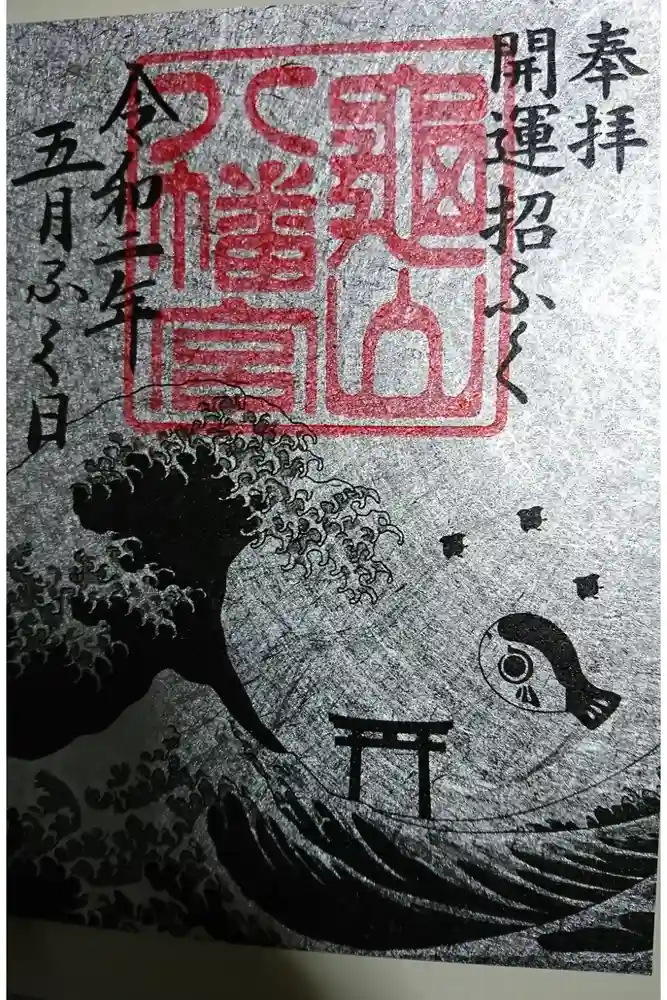 奉拝
開運招ふく
亀山
八幡宮
令和二年
五月ふく日